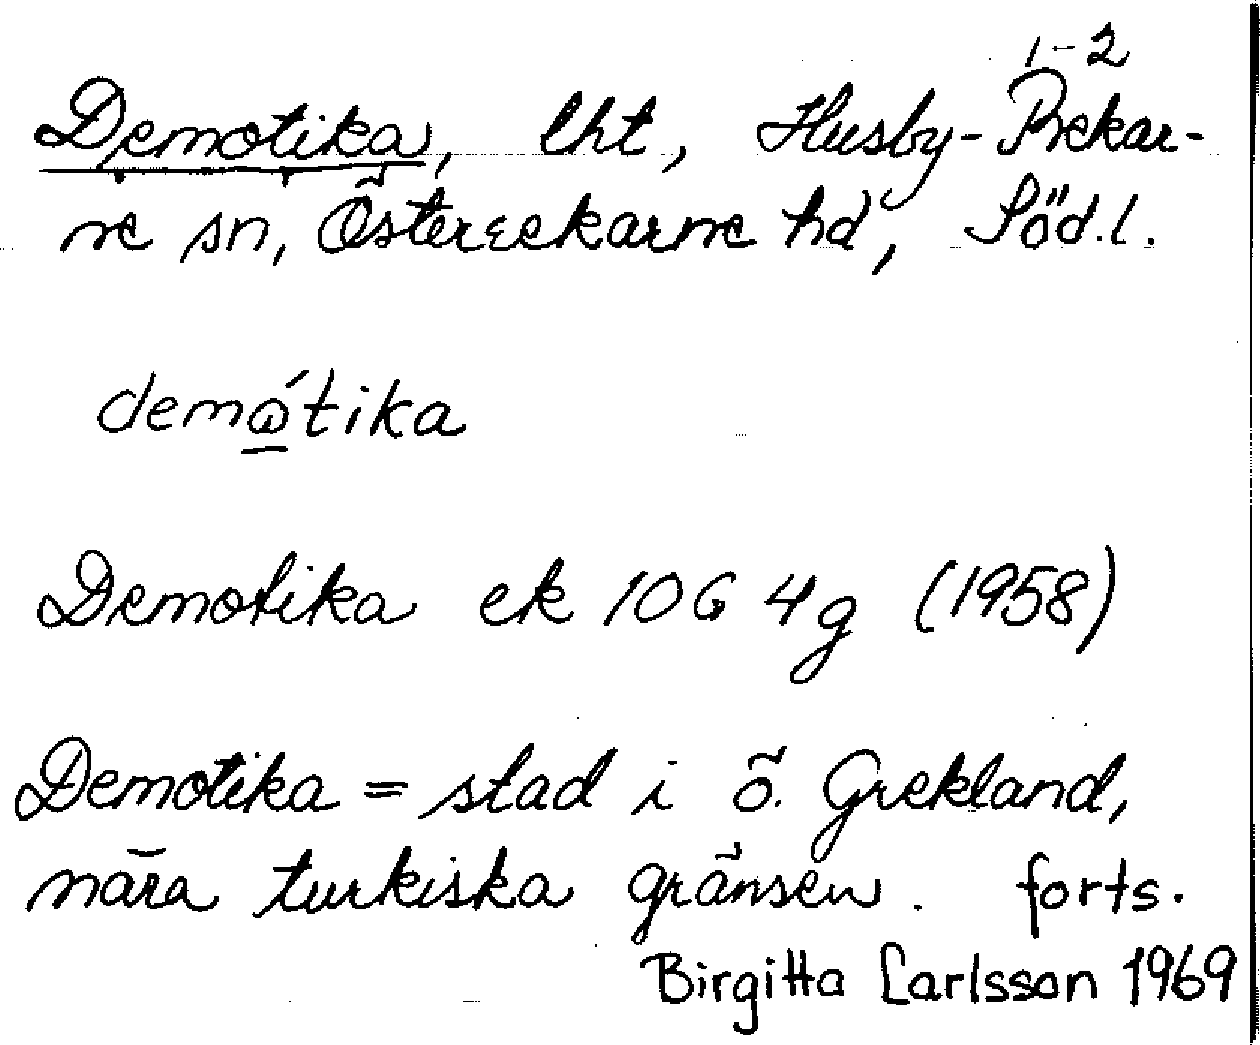 1-2
Demotika, lht, Husby-Rekar-
ne sn, Österrekarne hd, Söd.l.
demό̲tika
Demotika ek 10G 4g (1958)
Demotika = stad i ö. Grekland,
nära turkiska gränsen. forts.
Birgitta Carlsson 1969